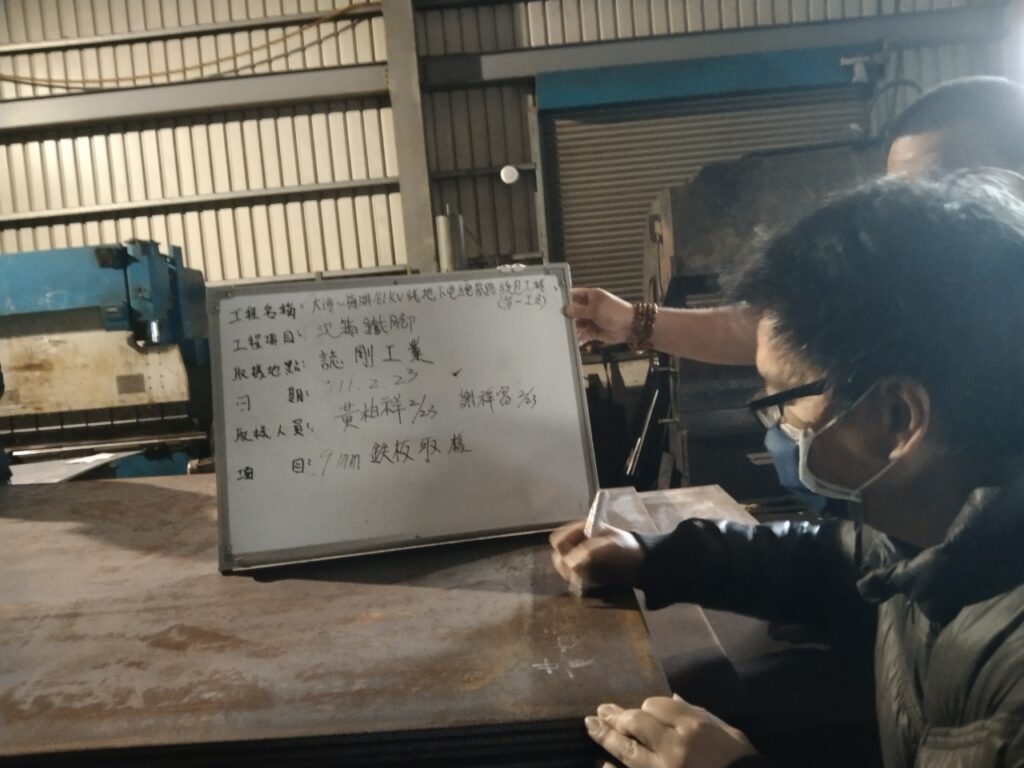 工程名稱: 大潭~梅湖161KV線地下電纜管路統包工程
(第一工區)
工程項目: 沉箱鐵腳
取樣地點: 誌剛工業
日 期: 111.2.23
取樣人員: 黃柏祥 2/23 謝祥富 2/23
項 目: 9mm 鉄板取樣